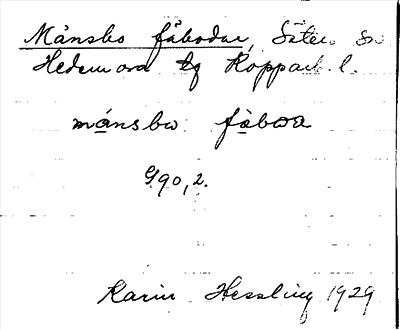 Månsbo fäbodar, Säter sn
Hedemora tg Kopparb. l.
månsbω fàbωa
990,2.
Karin Hessling 1929